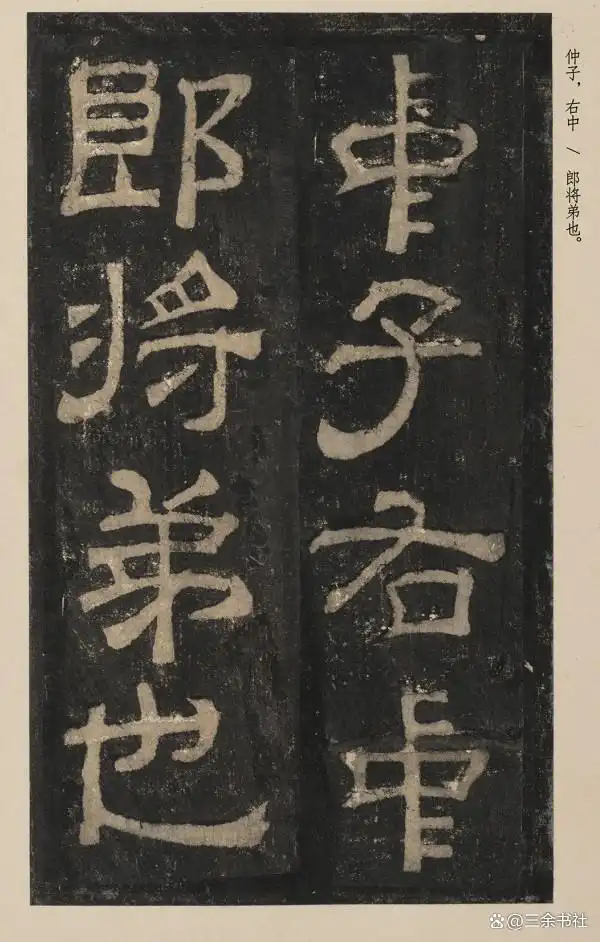 中子右中
郎将弟也
仲子，右中 / 郎将弟也。
@三余书社